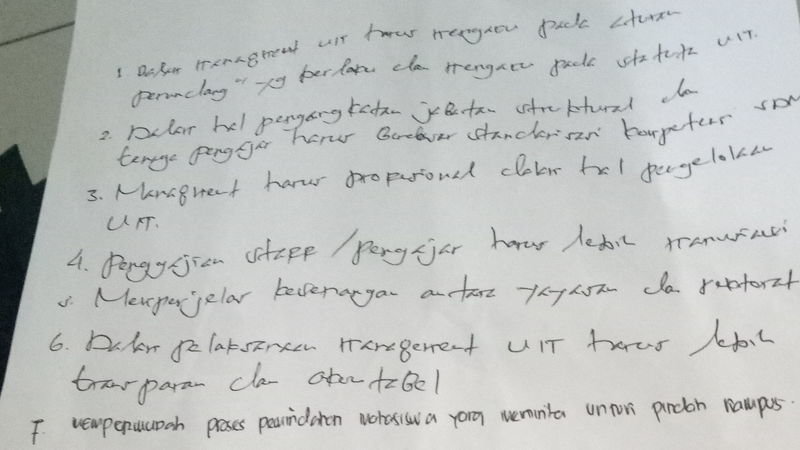 1. Dalam managment UIT harus mengacu pada aturan
perundang" yg berlaku dan mengacu pada statuta UIT.
2. Dalam hal pengangkatan jabatan struktural dan
tenaga pengajar harus standarisasi kompetensi SDM
3. Managment harus propesional dalam hal pengelolaan
UIT.
4. Penggajian staff / pengajar harus lebih manusiawi
5. Memperjelas kewenangan antara yayasan dan rektorat
6. Dalam pelaksanaan management UIT harus lebih
transparan dan akuntabel
7. mempermudah proses pemindahan mahasiswa yang meminta untuk pindah kampus.